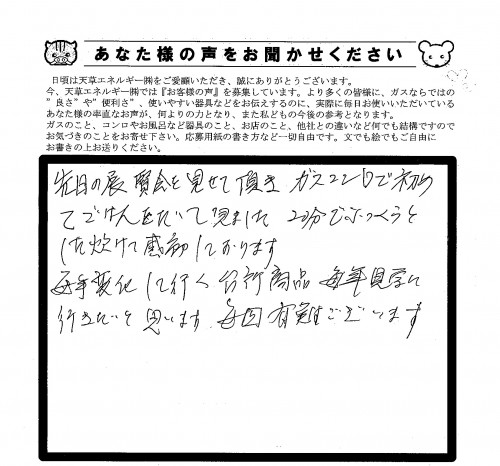 あなた様の声をお聞かせください
日頃は天草エネルギー㈱をご愛顧いただき、誠にありがとうございます。
今、天草エネルギー㈱では『お客様の声』を募集しています。より多くの皆様に、ガスならではの
”良さ”や”便利さ”、使いやすい器具などをお伝えするのに、実際に毎日お使いいただいている
あなた様の率直なお声が、何よりの力となり、また私どもの今後の参考となります。
ガスのこと、コンロやお風呂など器具のこと、お店のこと、他社との違いなど何でも結構ですので
お気づきのことをお寄せ下さい。応募用紙の書き方など一切自由です。文でも絵でもご自由に
お書きの上お送りください。
先日の展覧会を見せて頂き ガスコンロで初め
てごはんをたいて見ました 20分でふっくらと
した炊けて感動しております
毎年変化して行く台所商品 毎年見学に
行きたいと思います 毎回有難うございます